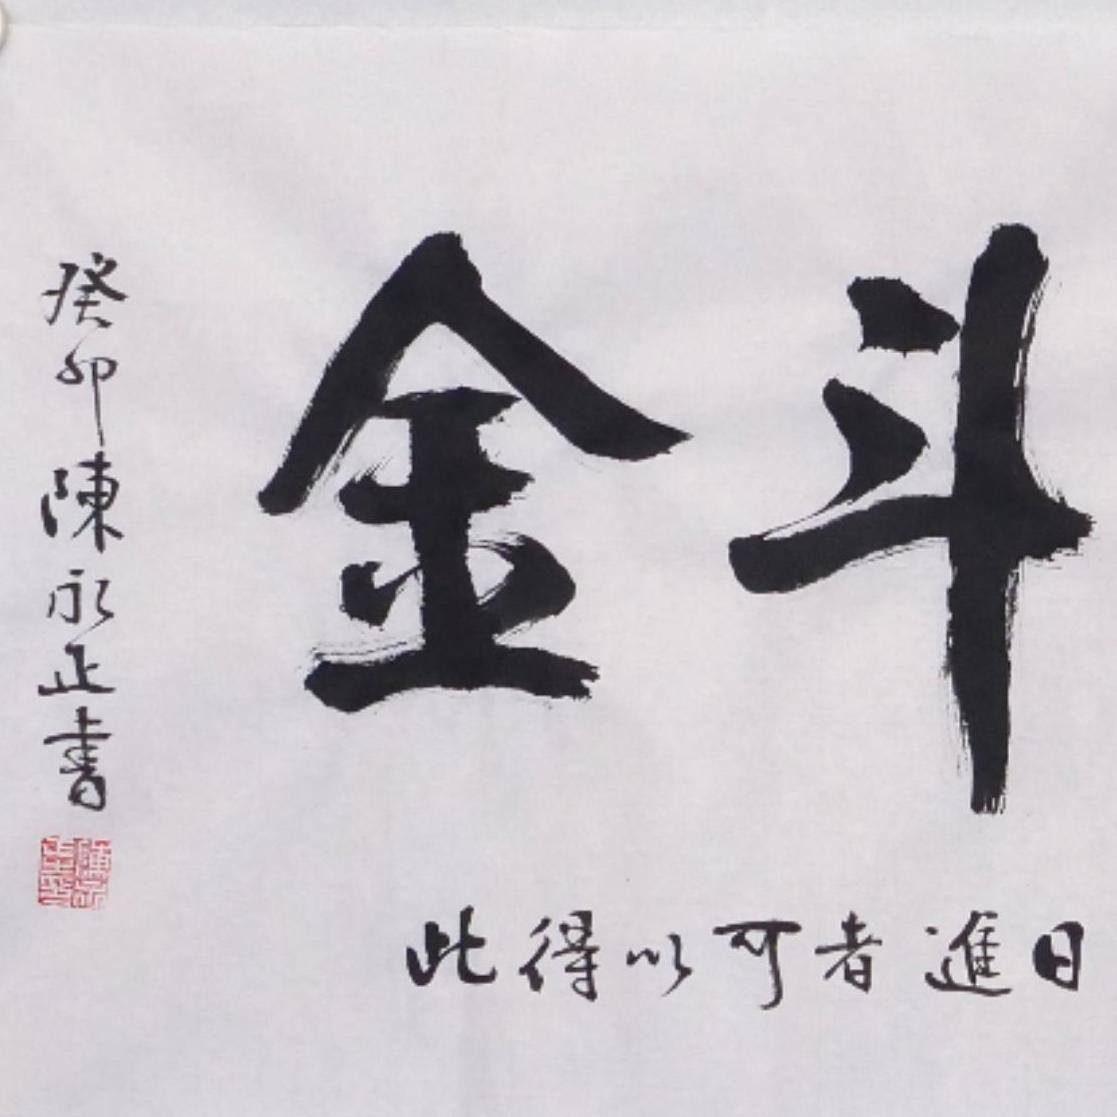 斗金
日進者可以得此
癸卯陳永正書